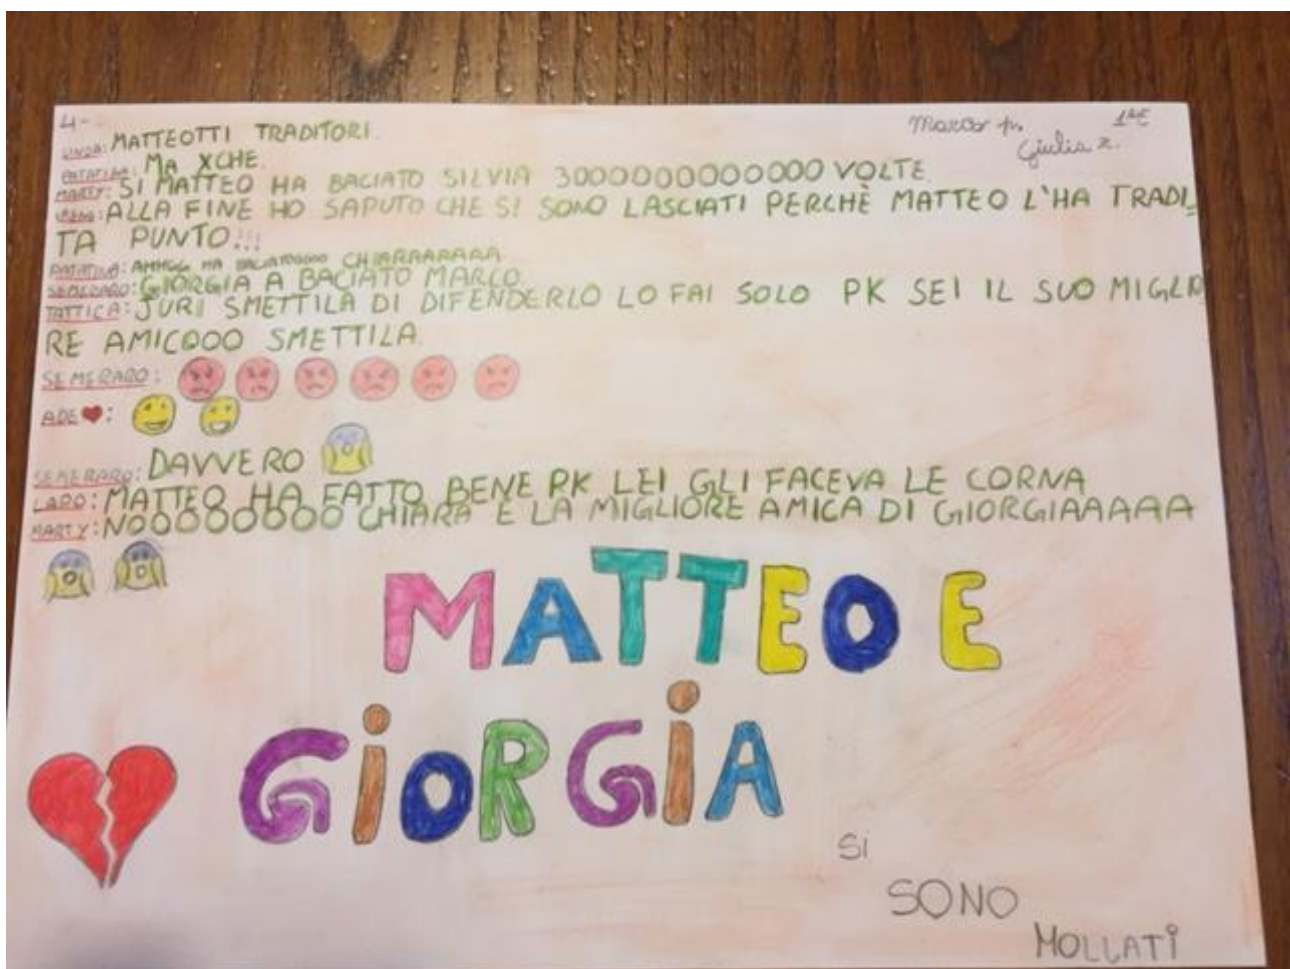 4-
Marco m. 1ªE
Giulia z.
LINDA: MATTEOTTI TRADITORI.
PATATINA: MA XCHE.
MARTY: SI MATTEO HA BACIATO SILVIA 3000000000000 VOLTE.
IRENE: ALLA FINE HO SAPUTO CHE SI SONO LASCIATI PERCHÈ MATTEO L'HA TRADI_
TA PUNTO!!!
PATATINA: HA CHIARAAAAAA.
SEMERARO: GIORGIA A BACIATO MARCO.
TATTICA: JURI SMETTILA DI DIFENDERLO LO FAI SOLO PK SEI IL SUO MIGLIO
RE AMICOOO SMETTILA.
SEMERARO: 😡 😡 😡 😡 😡 😡
ADE ❤: 😀 😀
SEMERARO: DAVVERO 😱
LAPO: MATTEO HA FATTO BENE PK LEI GLI FACEVA LE CORNA
MARTY: NOOOOOOOO CHIARA È LA MIGLIORE AMICA DI GIORGIAAAAA
😱 😱
MATTEO E
GiORGiA
SI
SONO
MOLLATI